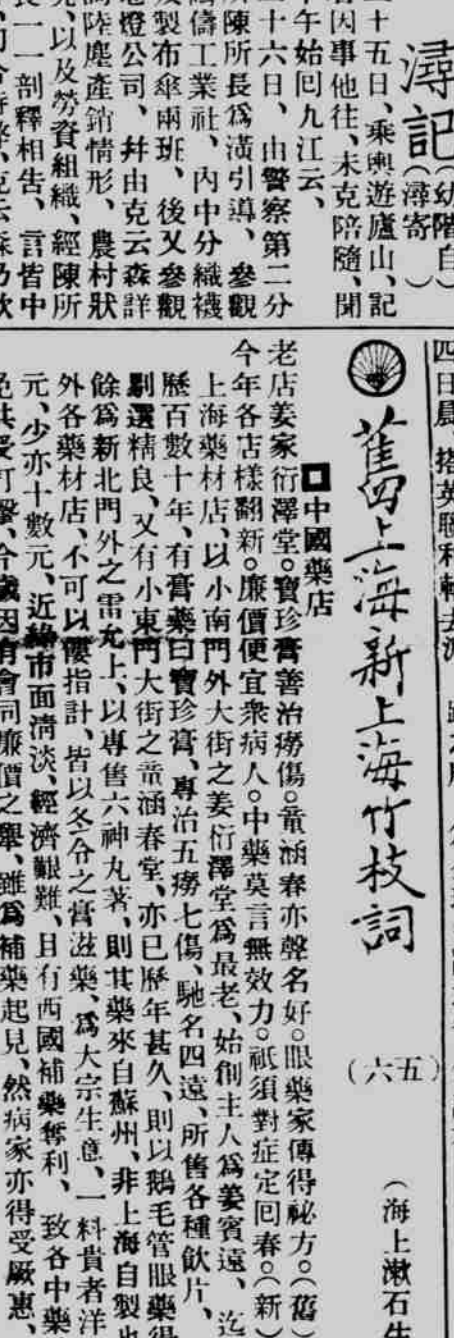 潯記
(幼階自
潯寄)
二十五日、乘輿遊廬山、記
者因事他往、未克陪隨、聞
午始囘九江云、
二十六日、由警察第二分
所陳所長爲潢引導、參觀
儔工業社、內中分織襪
製布傘兩班、後又參觀
燈公司、幷由克云森詳
陸塵產銷情形、農村狀
、以及勞資組織、經陳所
長一一剖釋相告、言皆中
四日晨、搭英聯和輪去
舊上海新上海竹枝詞
(六五)
(海上漱石生
□中國藥店
老店姜家衍澤堂。寶珍膏善治癆傷。童涵春亦聲名好。眼藥家傳得祕方。(舊)
今年各店樣翻新。廉價便宜衆病人。中藥莫言無效力。祇須對症定囘春。(新)
上海藥材店、以小南門外大街之姜衍澤堂爲最老、始創主人爲姜賓遠、迄
歷百數十年、有膏藥曰寶珍膏、專治五癆七傷、馳名四遠、所售各種飲片、
剔選精良、又有小東門大街之童涵春堂、亦已歷年甚久、則以鵝毛管眼藥得
餘爲新北門外之雷允上、以專售六神丸著、則其藥來自蘇州、非上海自製也
外各藥材店、不可以僂指計、皆以冬令之膏滋藥、爲大宗生意、一料貴者洋
元、少亦十數元、近緣市面淸淡、經濟艱難、且有西國補藥奪利、致各中藥
免共受打擊、今歲因有會同廉價之舉、雖爲補藥起見、然病家亦得受厥惠、